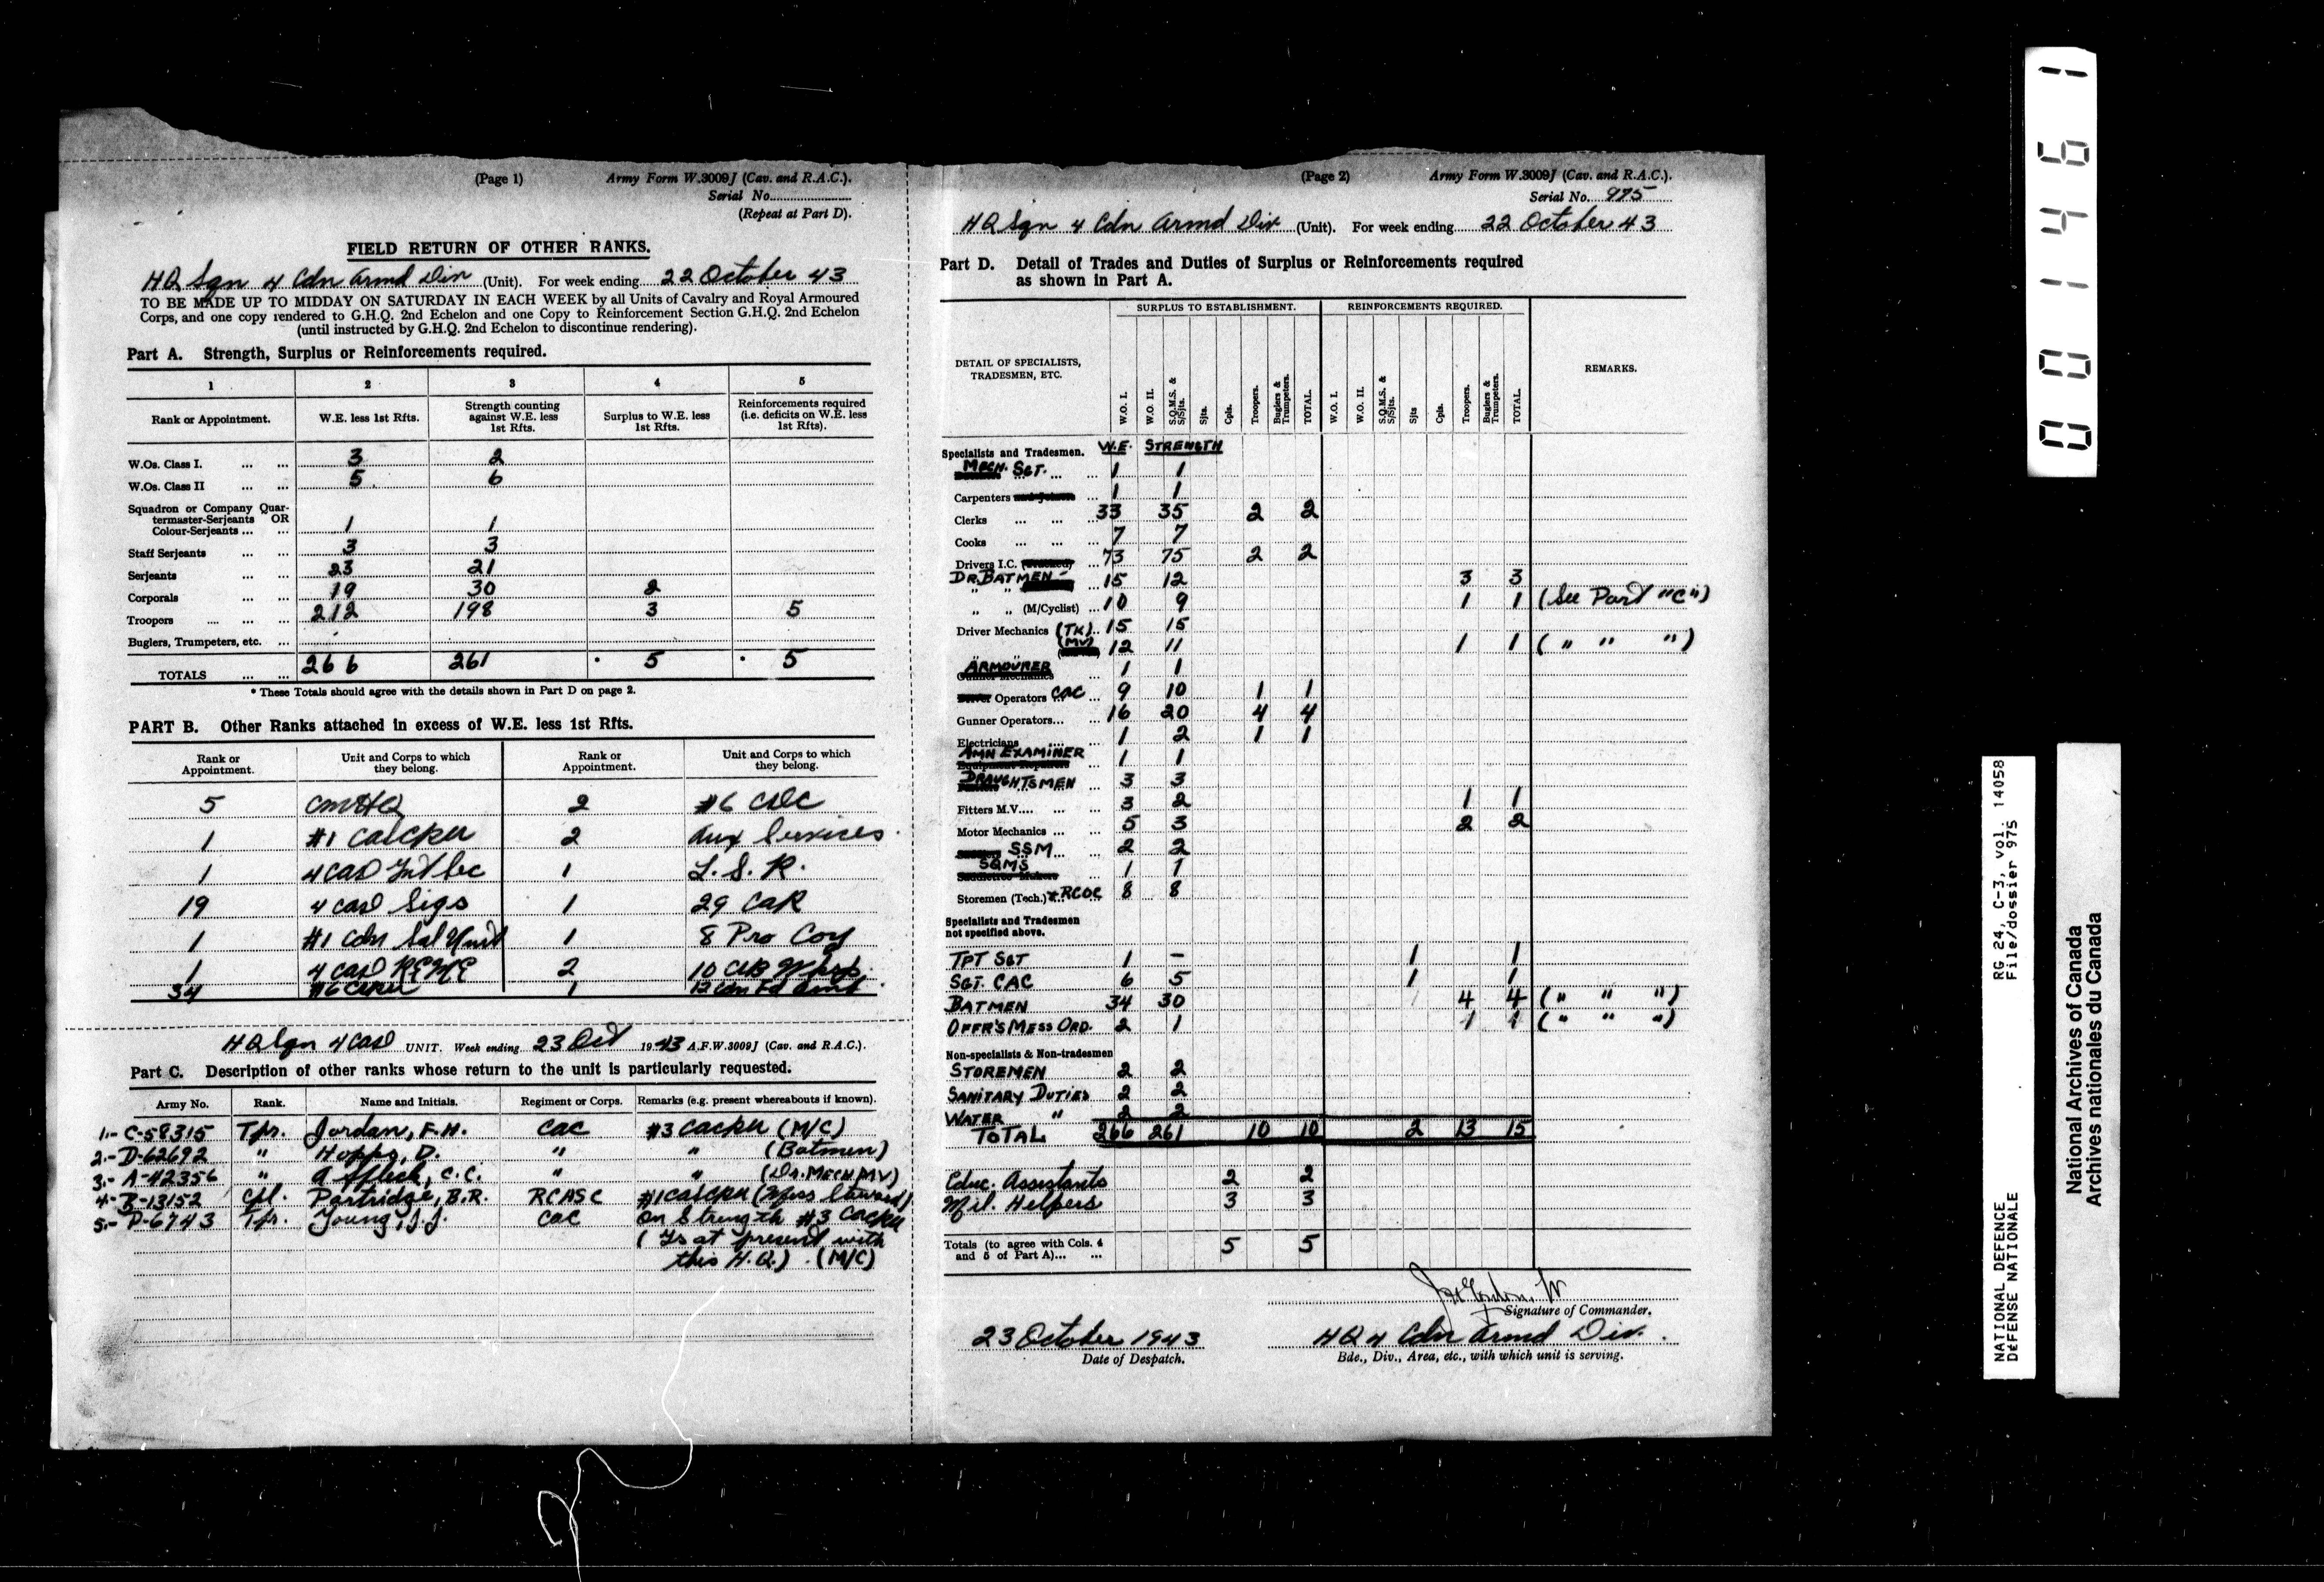 (Page 1) Army Form W.3009J (Cav. and R.A.C.).
Serial No.
(Repeat at Part D).
FIELD RETURN OF OTHER RANKS.
HQ Sqn 4 Cdn Armd Div (Unit). For week ending 22 October 43
TO BE MADE UP TO MIDDAY ON SATURDAY IN EACH WEEK by all Units of Cavalry and Royal Armoured
Corps, and one copy rendered to G.H.Q. 2nd Echelon and one Copy to Reinforcement Section G.H.Q. 2nd Echelon
(until instructed by G.H.Q. 2nd Echelon to discontinue rendering).
Part A. Strength, Surplus or Reinforcements required.
1 2 3 4 5
Rank or Appointment. W.E. less 1st Rfts. Strength counting against W.E. less 1st Rfts. Surplus to W.E. less 1st Rfts. Reinforcements required (i.e. deficits on W.E. less 1st Rfts).
W.Os. Class I. 3 2
W.Os. Class II 5 6
Squadron or Company Quar-
termaster-Serjeants OR
Colour-Serjeants 1 1
Staff Serjeants 3 3
Serjeants 23 21
Corporals 19 30 2
Troopers 212 198 3 5
Buglers, Trumpeters, etc.
TOTALS 266 261 * 5 * 5
* These Totals should agree with the details shown in Part D on page 2.
PART B. Other Ranks attached in excess of W.E. less 1st Rfts.
Rank or Appointment. Unit and Corps to which they belong. Rank or Appointment. Unit and Corps to which they belong.
5 CMHQ 2 #6 CDC
1 2 Aux Services
1 4 CAD 1 L.S.R.
19 4 CAD Sigs 1 29 CAR
1 #1 Cdn Sal Unit 1 8 Pro Coy
1 4 CAD REME 2
34 1
HQ Sqn 4 CAD UNIT. Week ending 23 Oct 1943 A.F.W.3009J (Cav. and R.A.C.).
Part C. Description of other ranks whose return to the unit is particularly requested.
Army No. Rank. Name and Initials. Regiment or Corps. Remarks (e.g. present whereabouts if known).
1.- C-58315 Tpr. Jordan, F.H. CAC #3 CACRU (M/C)
2.- D-62692 " Hopps, D. " " (Batmen)
3.- A-42356 " Affleck, C.C. " " (Dr. MECH MV)
4.- B-13152 Cpl. Partridge, B.R. RCASC (Mess Steward)
5.- P-6743 Tpr. Young, J.J. CAC On Strength #3 CACRU
( Is at present with
this H.Q.) . (M/C)
(Page 2) Army Form W.3009J (Cav. and R.A.C.).
Serial No. 975
HQ Sqn 4 Cdn Armd Div (Unit). For week ending 22 October 43
Part D. Detail of Trades and Duties of Surplus or Reinforcements required
as shown in Part A.
SURPLUS TO ESTABLISHMENT. REINFORCEMENTS REQUIRED.
DETAIL OF SPECIALISTS, TRADESMEN, ETC. W.O. I. W.O. II. S.Q.M.S. & S/Sjts. Sjts. Cpls. Troopers. Buglers & Trumpeters. TOTAL. W.O. I. W.O. II. S.Q.M.S. & S/Sjts. Sjts Cpls. Troopers. Buglers & Trumpeters. TOTAL. REMARKS.
Specialists and Tradesmen. W.E. STRENGTH
MECH. SGT. 1 1
Carpenters 1 1
Clerks 33 35 2 2
Cooks 7 7
Drivers I.C. 73 75 2 2
DR. BATMEN 15 12 3 3
" " (M/Cyclist) 10 9 1 1 (See Part "C")
Driver Mechanics (TK) 15 15
(MV) 12 11 1 1 ( " " ")
ARMOURER 1 1
Operators CAC 9 10 1 1
Gunner Operators 16 20 4 4
Electricians 1 2 1 1
AMN EXAMINER 1 1
DRAUGHTSMEN 3 3
Fitters M.V. 3 2 1 1
Motor Mechanics 5 3 2 2
SSM 2 2
SQMS 1 1
Storemen (Tech.) RCOC 8 8
Specialists and Tradesmen
not specified above.
TPT SGT 1 - 1 1
SGT. CAC 6 5 1 1
BATMEN 34 30 4 4 ( " " ")
OFFR'S MESS ORD. 2 1 1 1 ( " " ")
Non-specialists & Non-tradesmen
STOREMEN 2 2
SANITARY DUTIES 2 2
WATER " 2 2
TOTAL 266 261 10 10 2 13 15
Educ. Assistants 2 2
Mil. Helpers 3 3
Totals (to agree with Cols. 4
and 5 of Part A) 5 5
Signature of Commander.
23 October 1943 HQ 4 Cdn Armd Div.
Date of Despatch. Bde., Div., Area, etc., with which unit is serving.
001461
NATIONAL DEFENCE RG 24, C-3, vol. 14058
DÉFENSE NATIONALE File/dossier 975
National Archives of Canada
Archives nationales du Canada